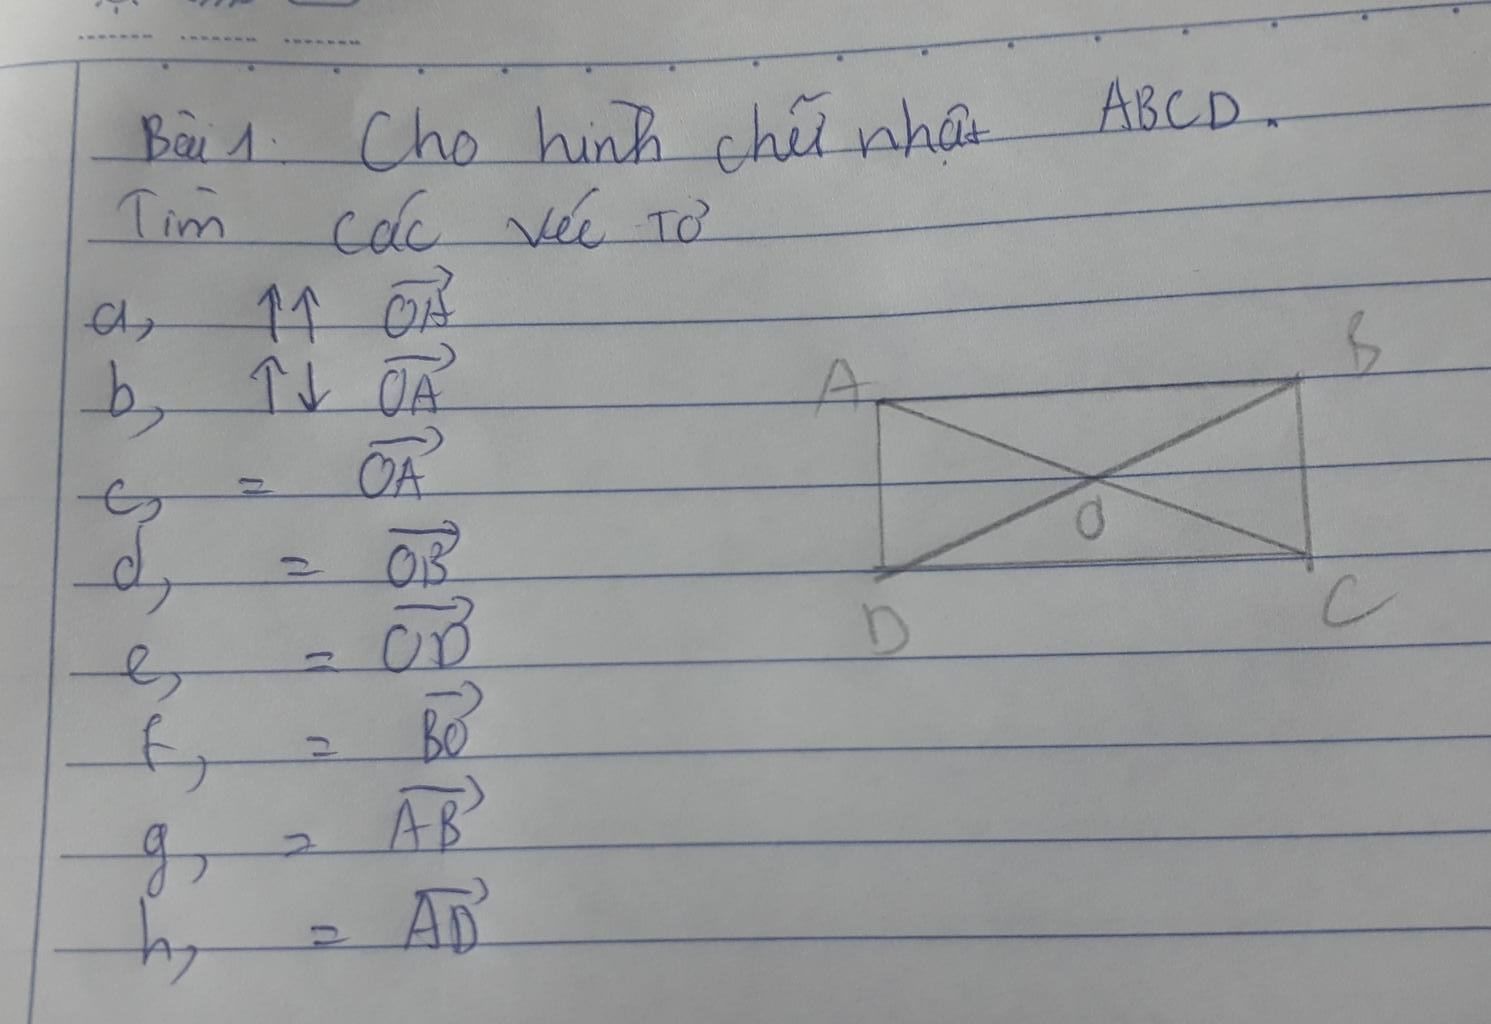 Bài 1. Cho hình chữ nhật ABCD.
Tìm các véc tơ
a, ↑↑ $\overrightarrow{OA}$
b, ↑↓ $\overrightarrow{OA}$
c, = $\overrightarrow{OA}$
d, = $\overrightarrow{OB}$
e, = $\overrightarrow{OD}$
f, = $\overrightarrow{BO}$
g, = $\overrightarrow{AB}$
h, = $\overrightarrow{AD}$
A B
O
D C